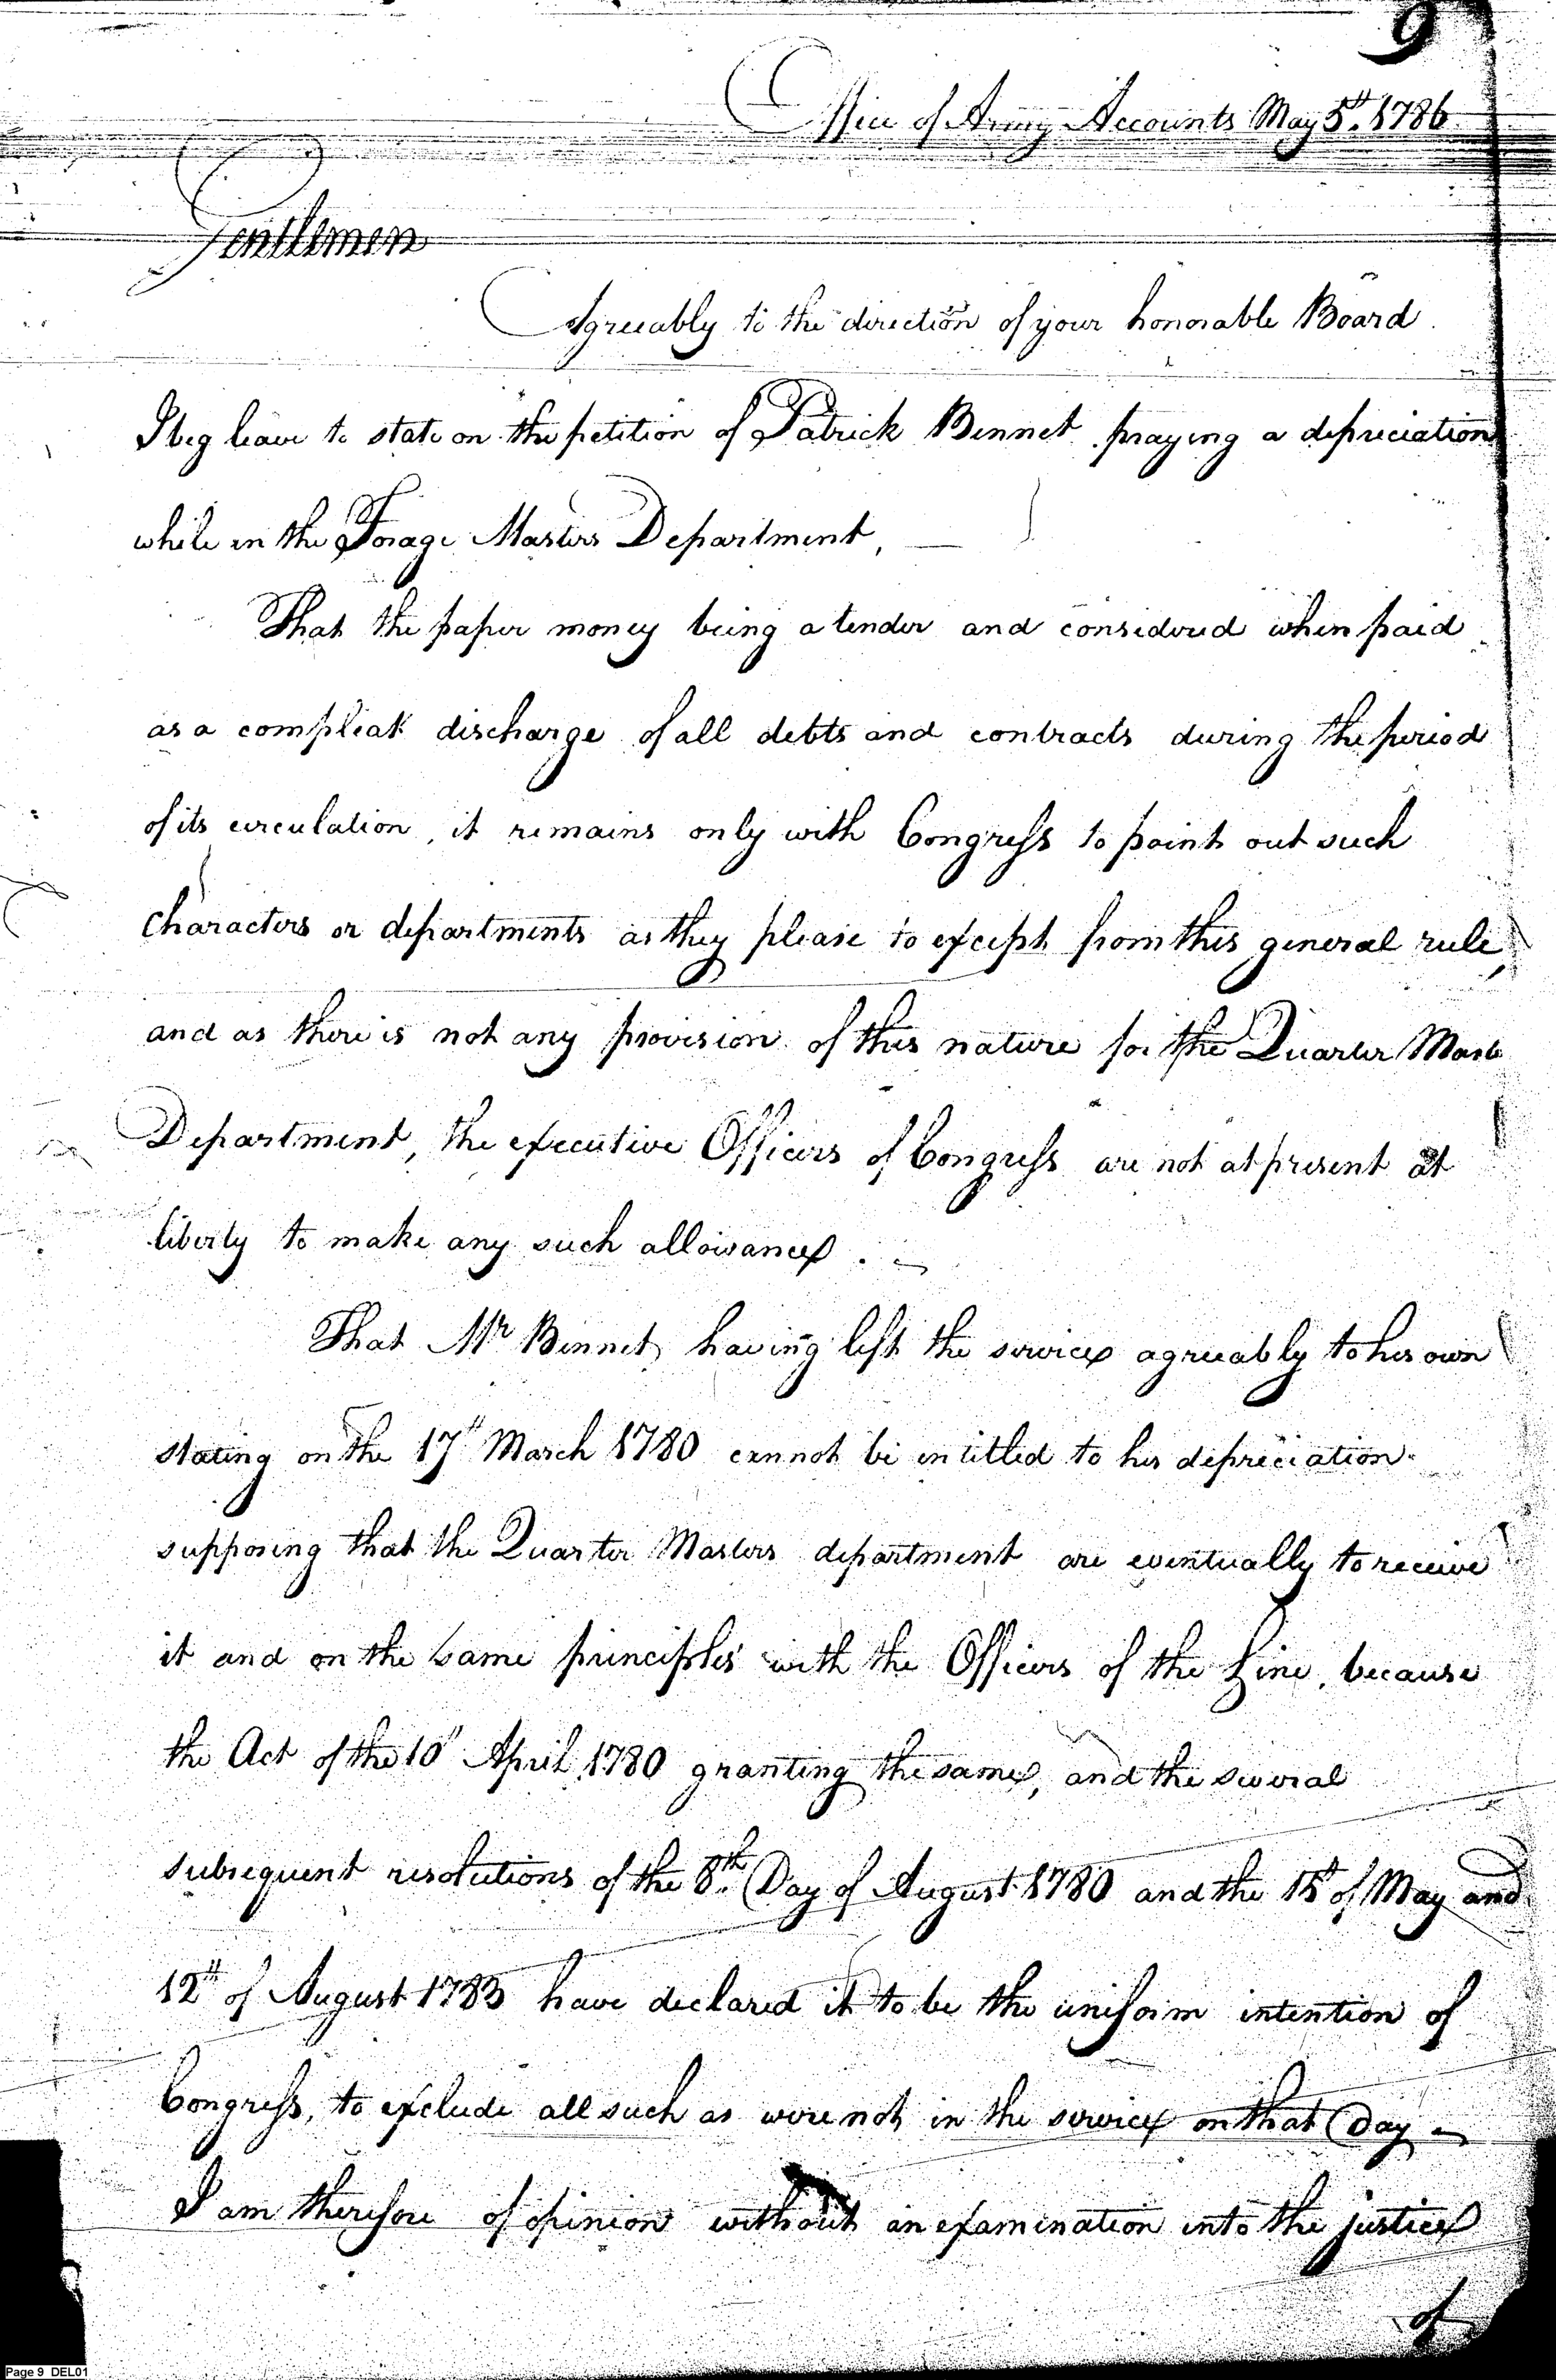 9
Office of Army Accounts May 5th. 1786
Gentlemen
Agreeably to the direction of your honorable Board
I beg leave to state on the petition of Patrick Bennet praying a depreciation
while in the Forage Masters Department,
That the paper money being a tender and considered when paid
as a compleat discharge of all debts and contracts during the period
of its circulation, it remains only with Congress to point out such
characters or departments as they please to except from this general rule,
and as there is not any provision of this nature for the Quarter Mast
Department, the executive Officers of Congress are not at present at
liberty to make any such allowance.
That Mr Bennet, having left the service agreeably to his own
stating on the 17th March 1780 cannot be entitled to his depreciation
supposing that the Quarter Masters department are eventually to receive
it and on the same principles with the Officers of the Line, because
the Act of the 10th April 1780 granting the same, and the several
subsequent resolutions of the 8th. Day of August 1780 and the 15th of May and
12th of August 1783 have declared it to be the uniform intention of
Congress, to exclude all such as were not in the service on that Day
I am therefore of opinion without an examination into the justice
of
Page 9 DEL01